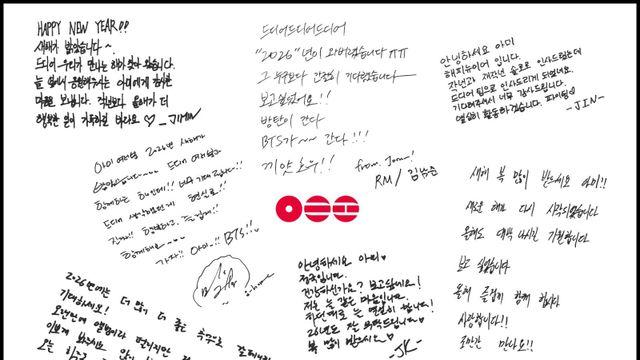 HAPPY NEW YEAR!!
새해가 밝았습니다~
드디어 우리가 만나는 해가 찾아 왔습니다.
늘 옆에서 응원해주는 아미에게 감사한
마음 보냅니다. 작년보다 올해가 더
행복한 일이 가득하길 바라요♡ -JIMIN
드디어드디어드디어
"2026"년이 와버렸습니다 ㅠㅠ
그 누구보다 간절히 기다렸습니다
보고싶었어요!!
방탄이 간다
BTS가~~ 간다!!!
끼얏호우!! from. Joon!
RM / 김남준
안녕하세요 아미
해피뉴이어 입니다.
작년과 재작년 솔로로 인사드렸는데
드디어 팀으로 인사드리게 되었네요.
기다려주셔서 너무 감사드립니다.
열심히 활동하겠습니다. 파이팅♡
-JIN-
아미 여러분 2026년 새해가
밝았습니다~~ 드디어 여러분과
함께하는 해인데!! 너무 기대됩니다!!
드디어
현실로!!
함께해요~~
가자!! 아미!! BTS!!
새해 복 많이 받으세요 아미!!
새로운 해가 다시 시작되었습니다
올해도 대박 나시길 기원합니다
보고 싶었습니다
올해 즐겁게 함께 합시다
사랑합니다!!
조만간 만나요!!
안녕하세요 아미♡
정국입니다.
건강하신가요? 보고싶네요!
저는 늘 같은 마음입니다.
최선을
26년도 잘 부탁드립니다♡
복 많이 받으시고♡
-JK-
2026년에는 더 많고 더 좋은
기대하세요!
오랜만에 앨범이랑